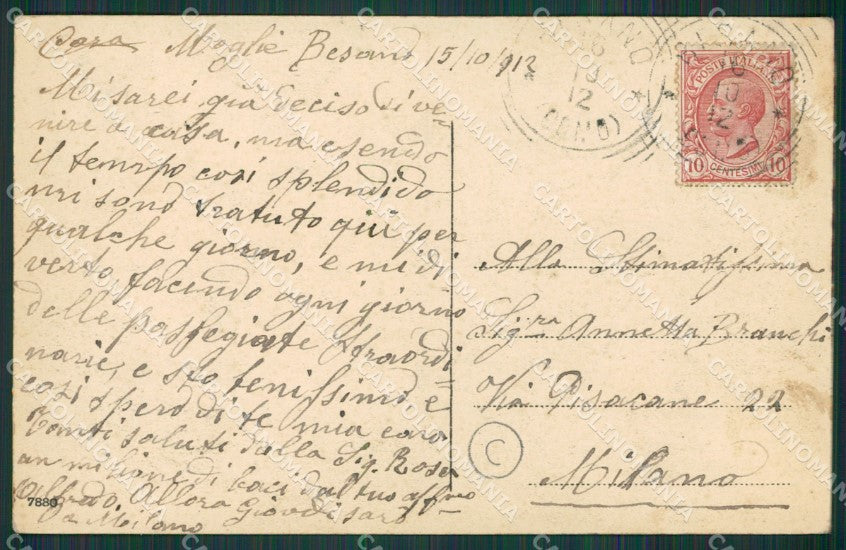 Cara Moglie Besano 15/10/912
Mi sarei già deciso di ve-
nire a casa, ma esendo
il tempo così splendido
mi sono tratuto qui per
qualche giorno, e mi di-
verto, facendo ogni giorno
delle passegiate straordi-
narie, e sto benissimo e
così spero di te mia cara
Tanti saluti dalla Sig. Rosa
un milione di baci dal tuo aff.mo
Alfredo Allora Giovedi sarò
a Milano
7880
POSTE ITALIANE
10 CENTESIMI 10
Alla Stimatissima
Sig.ra Annetta Branchi
Via Pisacane 22
Milano
C
CARTOLINOMANIA